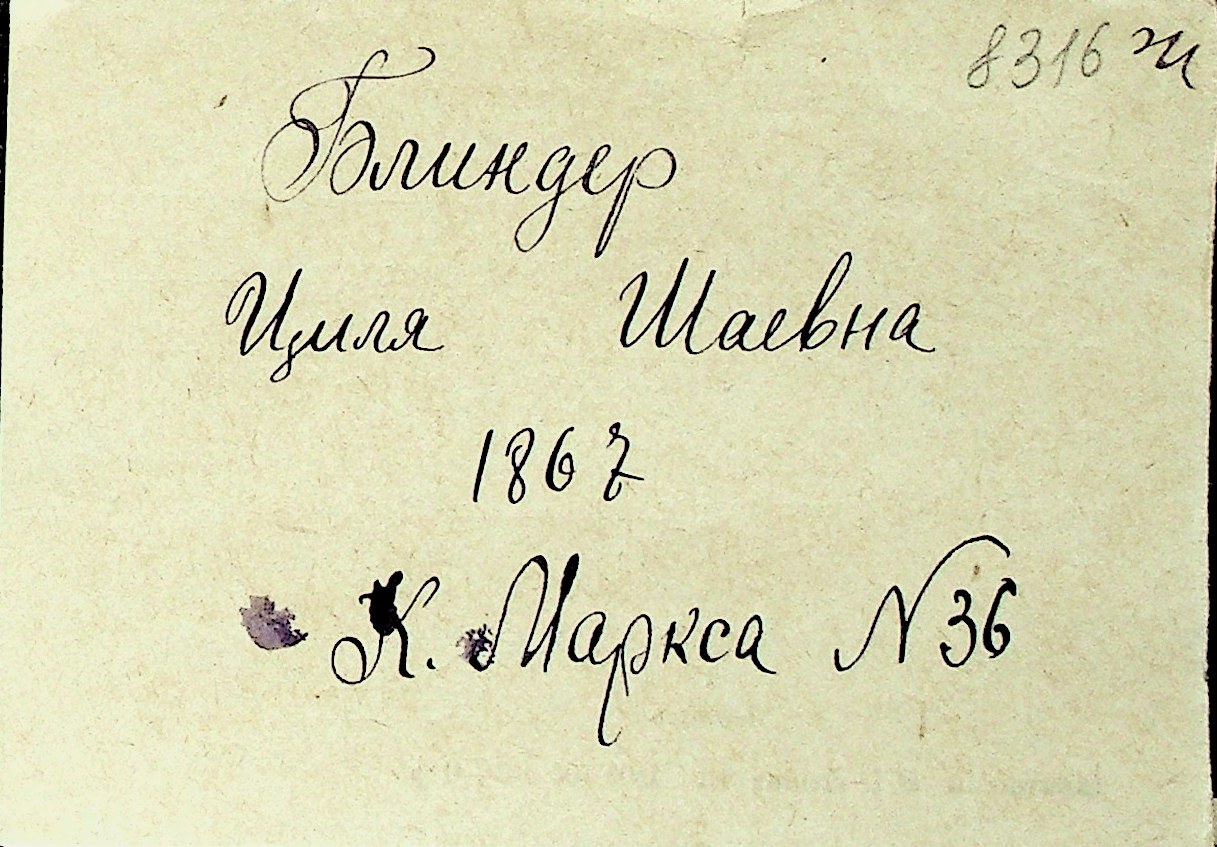 8316 ж
Блиндер
Циля Шаевна
1867
К. Маркса N 36